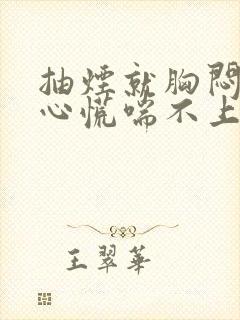 抽煙就胸悶
心慌喘不上
王翠華